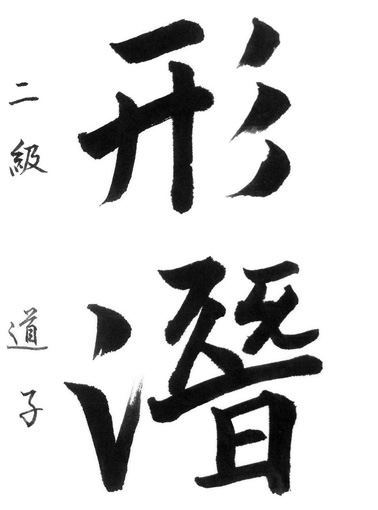 形潛
二級 道子